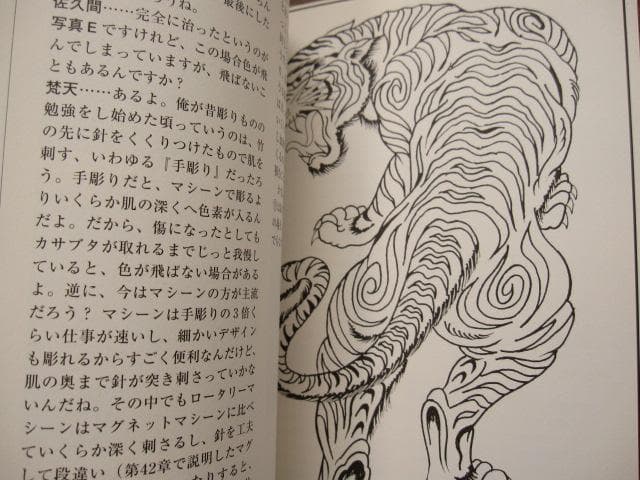 最後にした
ろうね。
佐久間……完全に治ったというのが
写真Eですけれど、この場合色が飛
んでしまっていますが、飛ばないこ
ともあるんですか？
梵天……あるよ。俺が昔彫りものの
勉強をし始めた頃っていうのは、竹
の先に針をくくりつけたもので肌を
刺す、いわゆる『手彫り』だったろ
う。手彫りだと、マシーンで彫るよ
りいくらか肌の深くへ色素が入るん
だよ。だから、傷になったとしても
カサブタが取れるまでじっと我慢し
ていると、色が飛ばない場合がある
よ。逆に、今はマシーンの方が主流
だろう？ マシーンは手彫りの３倍く
らい仕事が速いし、細かいデザイン
も彫れるからすごく便利なんだけど、
肌の奥まで針が突き刺さっていかな
いんだね。その中でもロータリーマ
シーンはマグネットマシーンに比べ
ていくらか深く刺さるし、針を工夫
して段違い（第42章で説明したマグ
なたりすると、